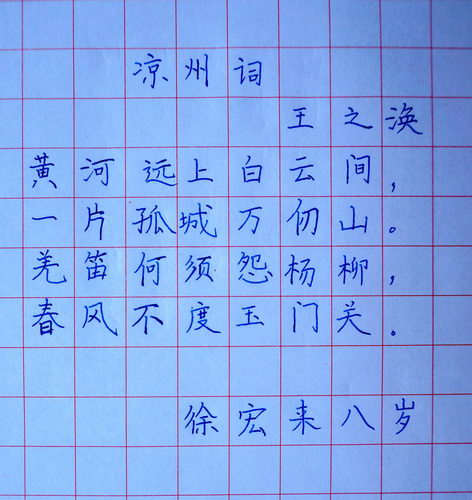 凉州词
王之涣
黄河远上白云间，
一片孤城万仞山。
羌笛何须怨杨柳，
春风不度玉门关。
徐宏来八岁